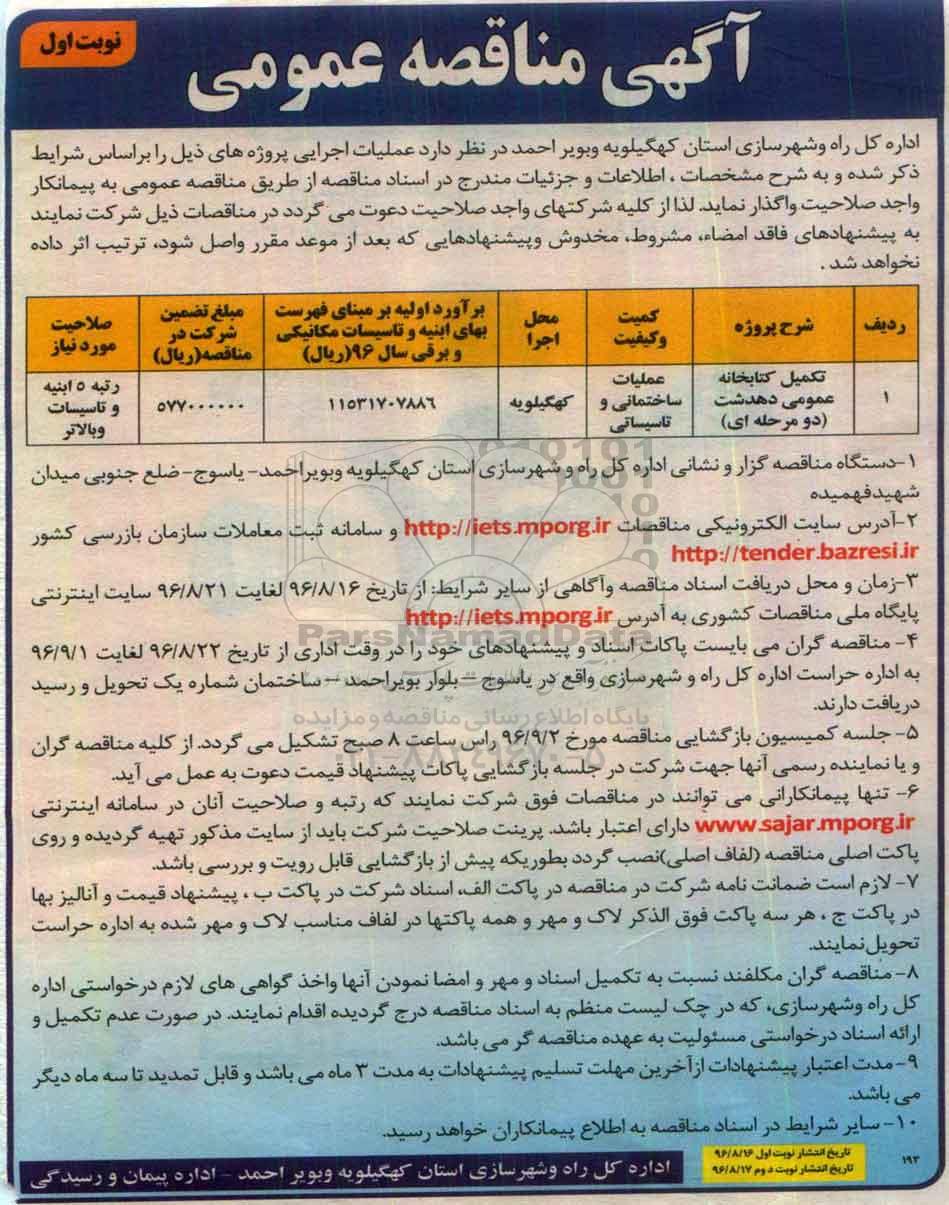 نوبت اول
آگهی مناقصه عمومی
اداره کل راه وشهرسازی استان کهگیلویه وبویر احمد در نظر دارد عملیات اجرایی پروژه های ذیل را براساس شرایط
ذکر شده و به شرح مشخصات ، اطلاعات و جزئیات مندرج در اسناد مناقصه از طریق مناقصه عمومی به پیمانکار
واجد صلاحیت واگذار نماید. لذا از کلیه شرکتهای واجد صلاحیت دعوت می گردد در مناقصات ذیل شرکت نمایند
به پیشنهادهای فاقد امضاء، مشروط، مخدوش وپیشنهادهایی که بعد از موعد مقرر واصل شود، ترتیب اثر داده
نخواهد شد .
ردیف
شرح پروژه
کمیت
وکیفیت
محل
اجرا
برآورد اولیه بر مبنای فهرست
بهای ابنیه و تاسیسات مکانیکی
و برقی سال ۹۶(ریال)
مبلغ تضمین
شرکت در
مناقصه(ریال)
صلاحیت
مورد نیاز
۱
تکمیل کتابخانه
عمومی دهدشت
(دو مرحله ای)
عملیات
ساختمانی و
تاسیساتی
کهگیلویه
۱۱۵۳۱۷۰۷۸۸۶
۵۷۷۰۰۰۰۰۰
رتبه ۵ ابنیه
و تاسیسات
وبالاتر
۱-دستگاه مناقصه گزار و نشانی اداره کل راه و شهرسازی استان کهگیلویه وبویراحمد- یاسوج- ضلع جنوبی میدان
شهیدفهمیده
۲-آدرس سایت الکترونیکی مناقصات http://iets.mporg.ir و سامانه ثبت معاملات سازمان بازرسی کشور
http://tender.bazresi.ir
۳-زمان و محل دریافت اسناد مناقصه وآگاهی از سایر شرایط: از تاریخ ۹۶/۸/۱۶ لغایت ۹۶/۸/۲۱ سایت اینترنتی
پایگاه ملی مناقصات کشوری به آدرس http://iets.mporg.ir
ParsNamadData
۴- مناقصه گران می بایست پاکات اسناد و پیشنهادهای خود را در وقت اداری از تاریخ ۹۶/۸/۲۲ لغایت ۹۶/۹/۱
به اداره حراست اداره کل راه و شهرسازی واقع در یاسوج –بلوار بویراحمد – ساختمان شماره یک تحویل و رسید
دریافت دارند.
پایگاه اطلاع رسانی مناقصه و مزایده
۵- جلسه کمیسیون بازگشایی مناقصه مورخ ۹۶/۹/۲ راس ساعت ۸ صبح تشکیل می گردد. از کلیه مناقصه گران
و یا نماینده رسمی آنها جهت شرکت در جلسه بازگشایی پاکات پیشنهاد قیمت دعوت به عمل می آید.
۶- تنها پیمانکارانی می توانند در مناقصات فوق شرکت نمایند که رتبه و صلاحیت آنان در سامانه اینترنتی
www.sajar.mporg.ir دارای اعتبار باشد. پرینت صلاحیت شرکت باید از سایت مذکور تهیه گردیده و روی
پاکت اصلی مناقصه (لفاف اصلی)نصب گردد بطوریکه پیش از بازگشایی قابل رویت و بررسی باشد.
۷- لازم است ضمانت نامه شرکت در مناقصه در پاکت الف، اسناد شرکت در پاکت ب ، پیشنهاد قیمت و آنالیز بها
در پاکت ج ، هر سه پاکت فوق الذکر لاک و مهر و همه پاکتها در لفاف مناسب لاک و مهر شده به اداره حراست
تحویل نمایند.
۸- مناقصه گران مکلفند نسبت به تکمیل اسناد و مهر و امضا نمودن آنها واخذ گواهی های لازم درخواستی اداره
کل راه وشهرسازی، که در چک لیست منظم به اسناد مناقصه درج گردیده اقدام نمایند. در صورت عدم تکمیل و
ارائه اسناد درخواستی مسئولیت به عهده مناقصه گر می باشد.
۹- مدت اعتبار پیشنهادات ازآخرین مهلت تسلیم پیشنهادات به مدت ۳ ماه می باشد و قابل تمدید تا سه ماه دیگر
می باشد.
۱۰- سایر شرایط در اسناد مناقصه به اطلاع پیمانکاران خواهد رسید.
تاریخ انتشار نوبت اول ۹۶/۸/۱۶
تاریخ انتشار نوبت دوم ۹۶/۸/۱۷
۱۹۳
اداره کل راه وشهرسازی استان کهگیلویه وبویر احمد – اداره پیمان و رسیدگی